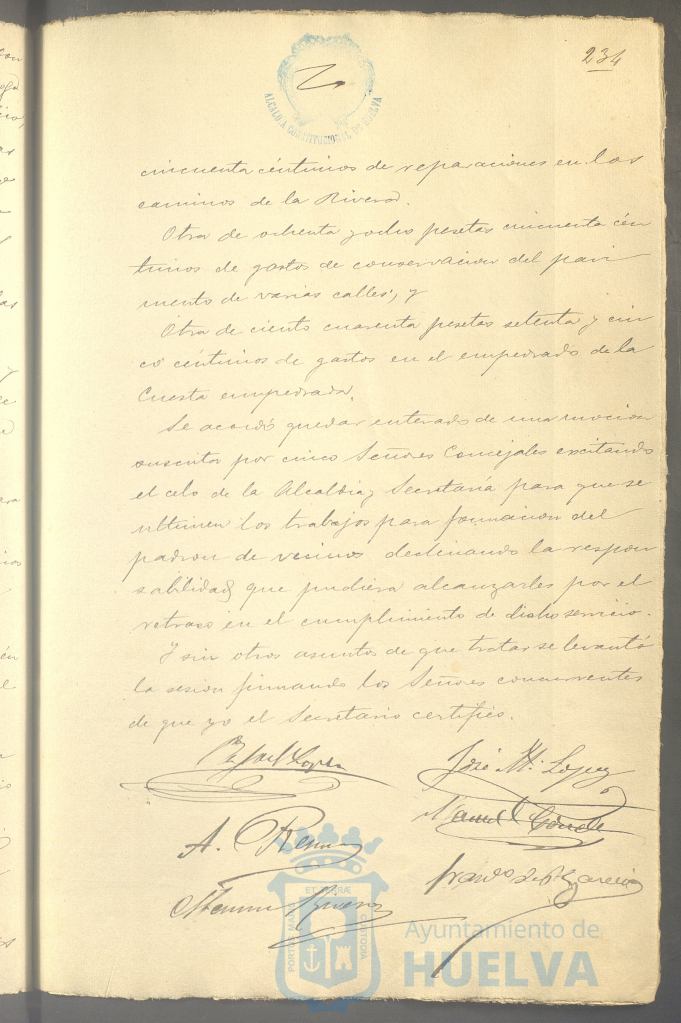 234
ALCALDIA CONSTITUCIONAL DE HUELVA
cincuenta céntimos de reparaciones en los
caminos de la Rivera.
Otra de ochenta y ocho pesetas cincuenta cén
timos de gastos de conservacion del pavi
mento de varias calles, y
Otra de ciento cuarenta pesetas setenta y cin
co céntimos de gastos en el empedrado de la
Cuesta empedrada.
Se acordó quedar enterado de una mocion
suscrita por cinco Señores Concejales excitando
el celo de la Alcaldia y Secretaría para que se
ultimen los trabajos para formacion del
padron de vecinos declinando la respon
sabilidad que pudiera alcanzarles por el
retraso en el cumplimiento de dicho servicio.
Y sin otros asuntos de que tratar se levantó
la sesion firmando los Señores concurrentes
de que yo el Secretario certifico.
Rafael Lopez
José M. Lopez
A.
Manuel
Garcia
PORTUS MARIS ET TERRAE CUSTODIA
Ayuntamiento de
HUELVA